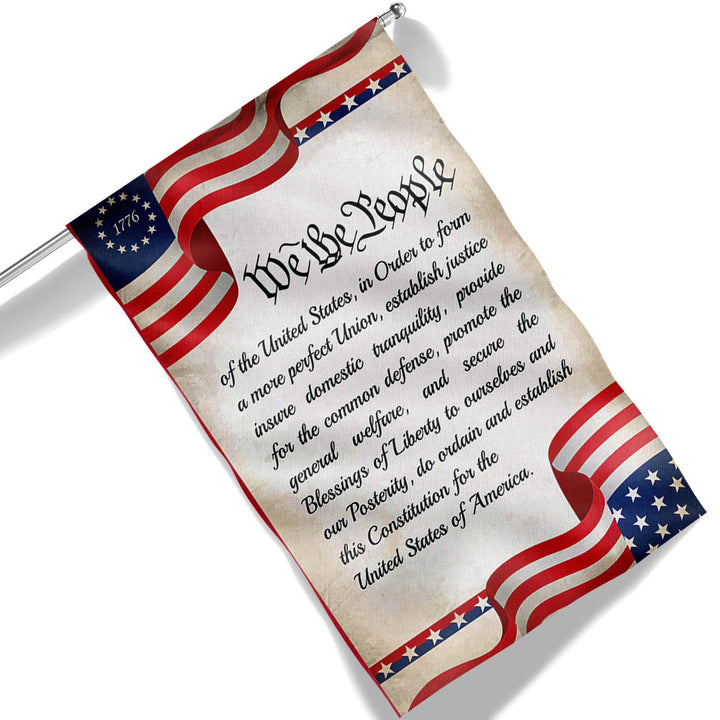 1776
We the People
of the United States, in Order to form
a more perfect Union, establish justice
insure domestic tranquility, provide
for the common defense, promote the
general welfare, and secure the
Blessings of Liberty to ourselves and
our Posterity, do ordain and establish
this Constitution for the
United States of America.